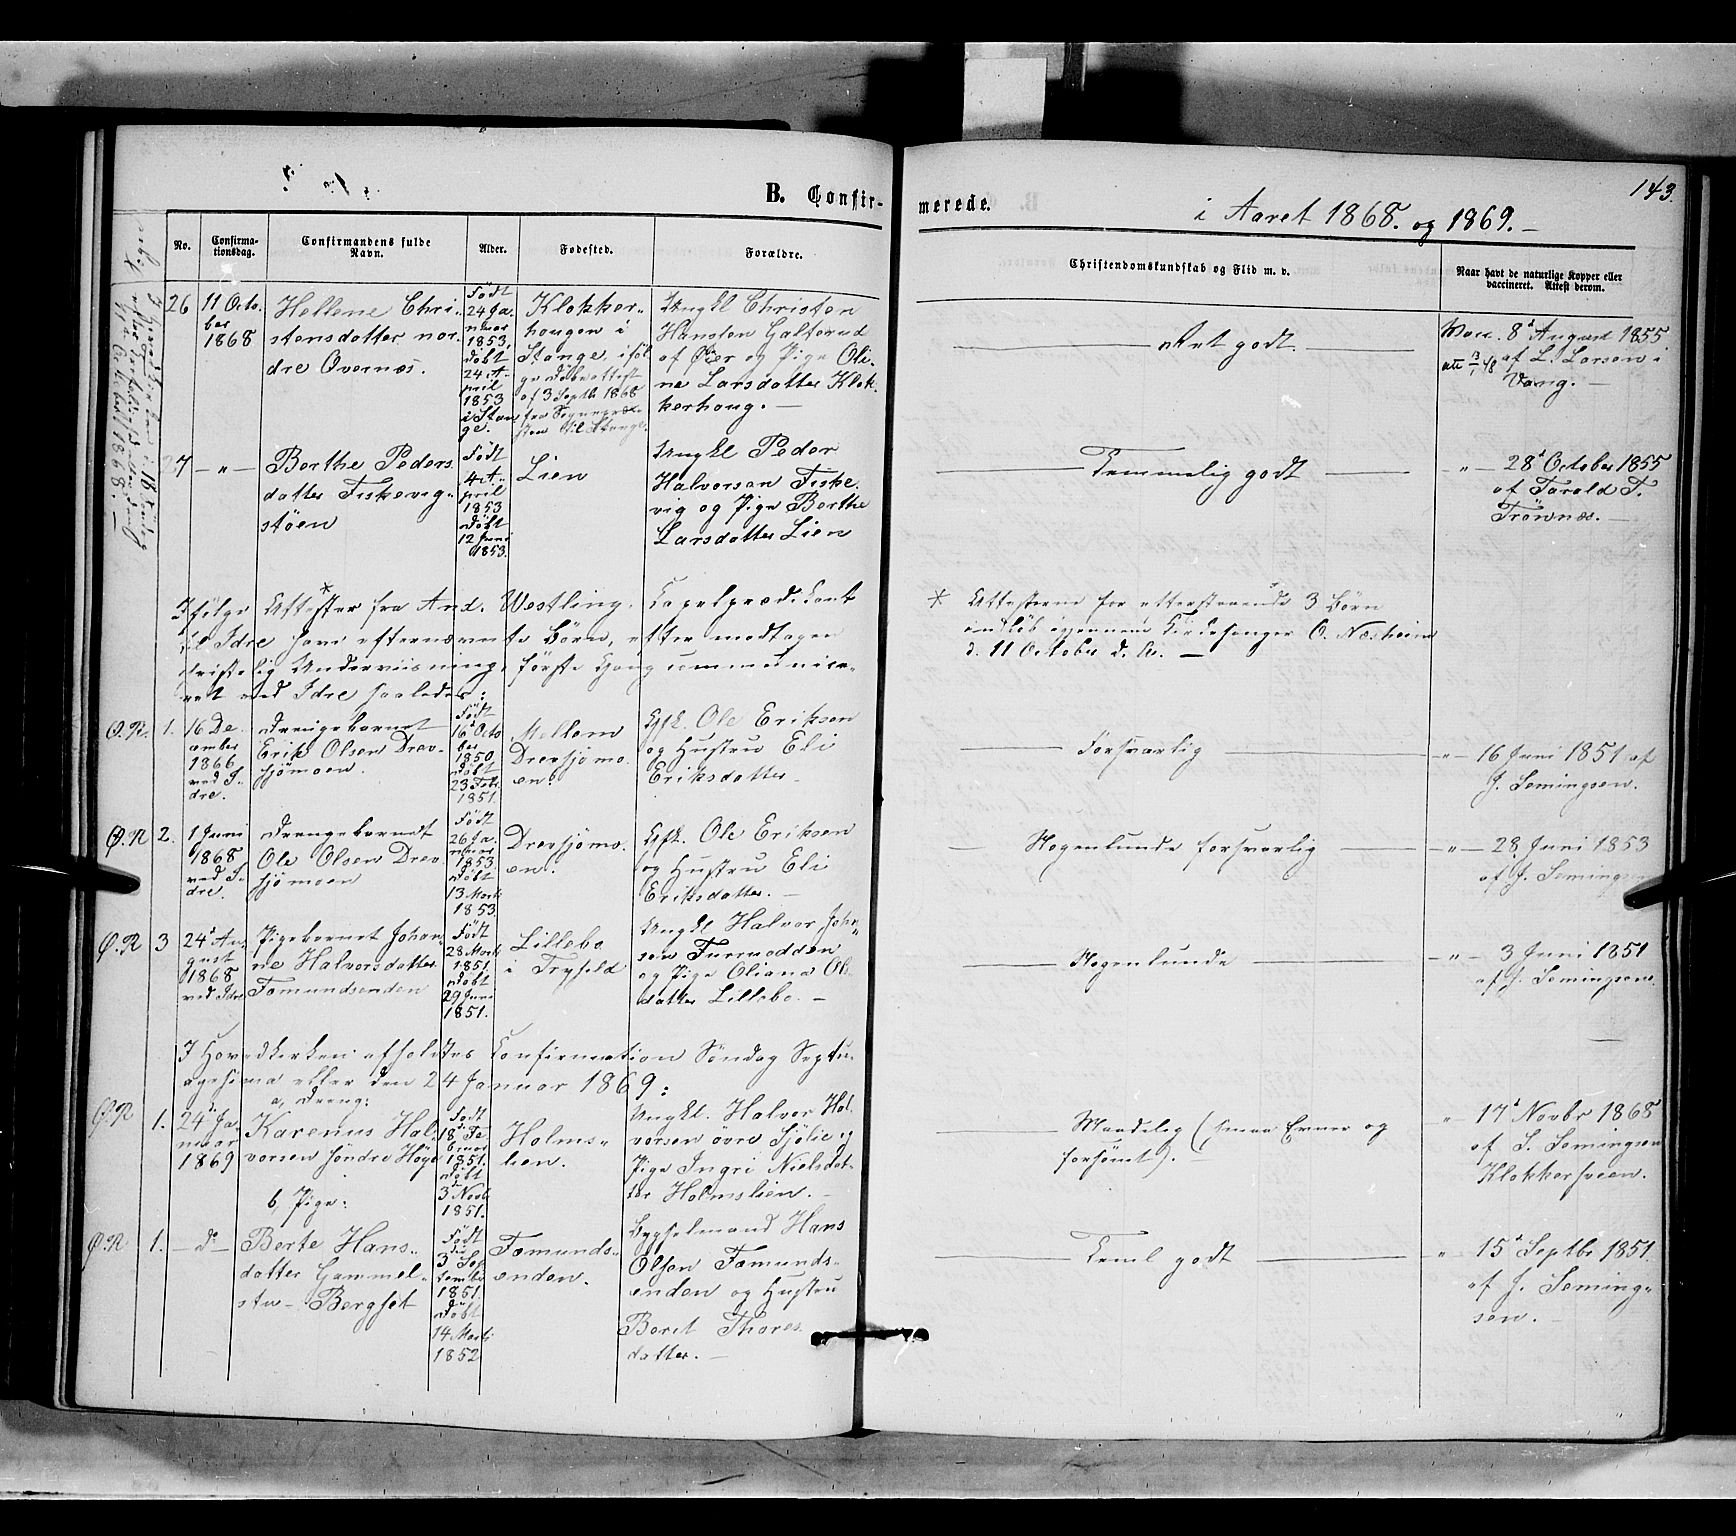 143.
B. Confir-
merede.
i Aaret 1868. og 1869.-
No.
Confirma-
tionsdag.
Confirmandens fulde
Navn.
Alder.
Fødested.
Forældre.
Christendomskundskab og Flid m. v.
Naar havt de naturlige Kopper eller
vaccineret. Attest derom.
26
11 Octo-
ber
1868
Hellene Chri-
stensdatter nor-
dre Overnæs.
Født
24 Ja-
nuar
1853.
døbt
24 A-
pril
1853
i Stan-
ge.
Klokker-
haugen i
Stange, iføl-
ge Døbeattest
af 3 Septb 1868
fra Sognepræ-
sten til Stange.
Ungkl Christen
Hansen Galterud
af og Pige Oli-
ne Larsdatter Klok-
kerhaug. -
Ret godt.
Vacc. 8de August 1855
af L. Larsen i
Vang. -
27
- " -
Berthe Peders-
datter Fiskevig-
støen
Født
4 A-
pril
1853
døbt
12 Juni
1853.
Lien
Ungkl Peder
Halvorsen Fiske-
vig og Pige Berthe
Larsdatter Lien
Temmelig godt
- " - 28de October 1855
af Tarald T.
Trønnæs. -
Ifølge Attester * fra And. Westling, Capelprædikant
til Idre have efternævnte Børn, efter modtagen
christelig Underviisning, første Gang communice-
ret ved Idre saaledes:
* Attesterne for efterstaaende 3 Børn
indløb igjennem Kirkesanger O. Næsheim
d. 11 October d. A. -
Ø.R. 1.
16 De-
cember
1866
ved I-
dre.
Drengebarnet
Erik Olsen Drev-
sjømoen.
Født
16 Octo-
ber
1850
døbt
23 Feb.
1851.
Mellem
Drevsjømo-
en.
Gft. Ole Eriksen
og Hustru Eli
Eriksdatter
Forsvarlig
- " - 16 Juni 1851 af
J. Semingsen.
Ø.R 2.
1 Juni
1868
ved I-
dre.
Drengebarnet
Ole Olsen Drev-
sjømoen
Født
26 Ja-
nuar
1853
døbt
13 Marts
1853
Drevsjømo-
en.
Gft. Ole Eriksen
og Hustru Eli
Eriksdatter. -
Nogenlunde forsvarlig
- " - 28 Juni 1853
af J. Semingsen
Ø.R 3
24de Au-
gust
1868
ved Idre
Pigebarnet Johan-
ne Halvorsdatter
Fæmundsenden
Født
28 Marts
1851.
døbt
29 Juni
1851.
Lillebo
i Trysild
Ungkl Halvor John-
sen Furuodden
og Pige Oliana Ols-
datter Lillebo. -
Nogenlunde
- " - 3 Juni 1851
af J. Semingsen.
I Hovedkirken afholdtes Confirmation Søndag Septu-
agesima eller den 24 Januar 1869:
a, Dreng:
Ø.R 1.
24de Ja-
nuar
1869
Karenus Hal-
vorsen søndre Høye
Født
18de Fe-
bruar
1851.
døbt
3 Novb
1851.
Holms-
lien.
Ungkl. Halvor Hal-
vorsen øvre Sjølie og
Pige Ingri Nielsdat-
ter Holmslien. -
Maadelig (smaa Evner og
forsømt). -
" 17de Novbr 1868
af S. Semingsen
Klokkersveen.
b, Pige:
Ø.R. 1.
- do -
Berte Hans-
datter Gammel-
stu-Bergset
Født
3 Sep-
tember
1851.
døbt
14 Marts
1852
Fæmunds-
enden.
Bygselmand Hans
Olsen Fæmunds-
enden og Hustru
Beret Thores-
datter. -
Teml godt
" 15de Septbr 1851.
af J. Seming-
sen. -